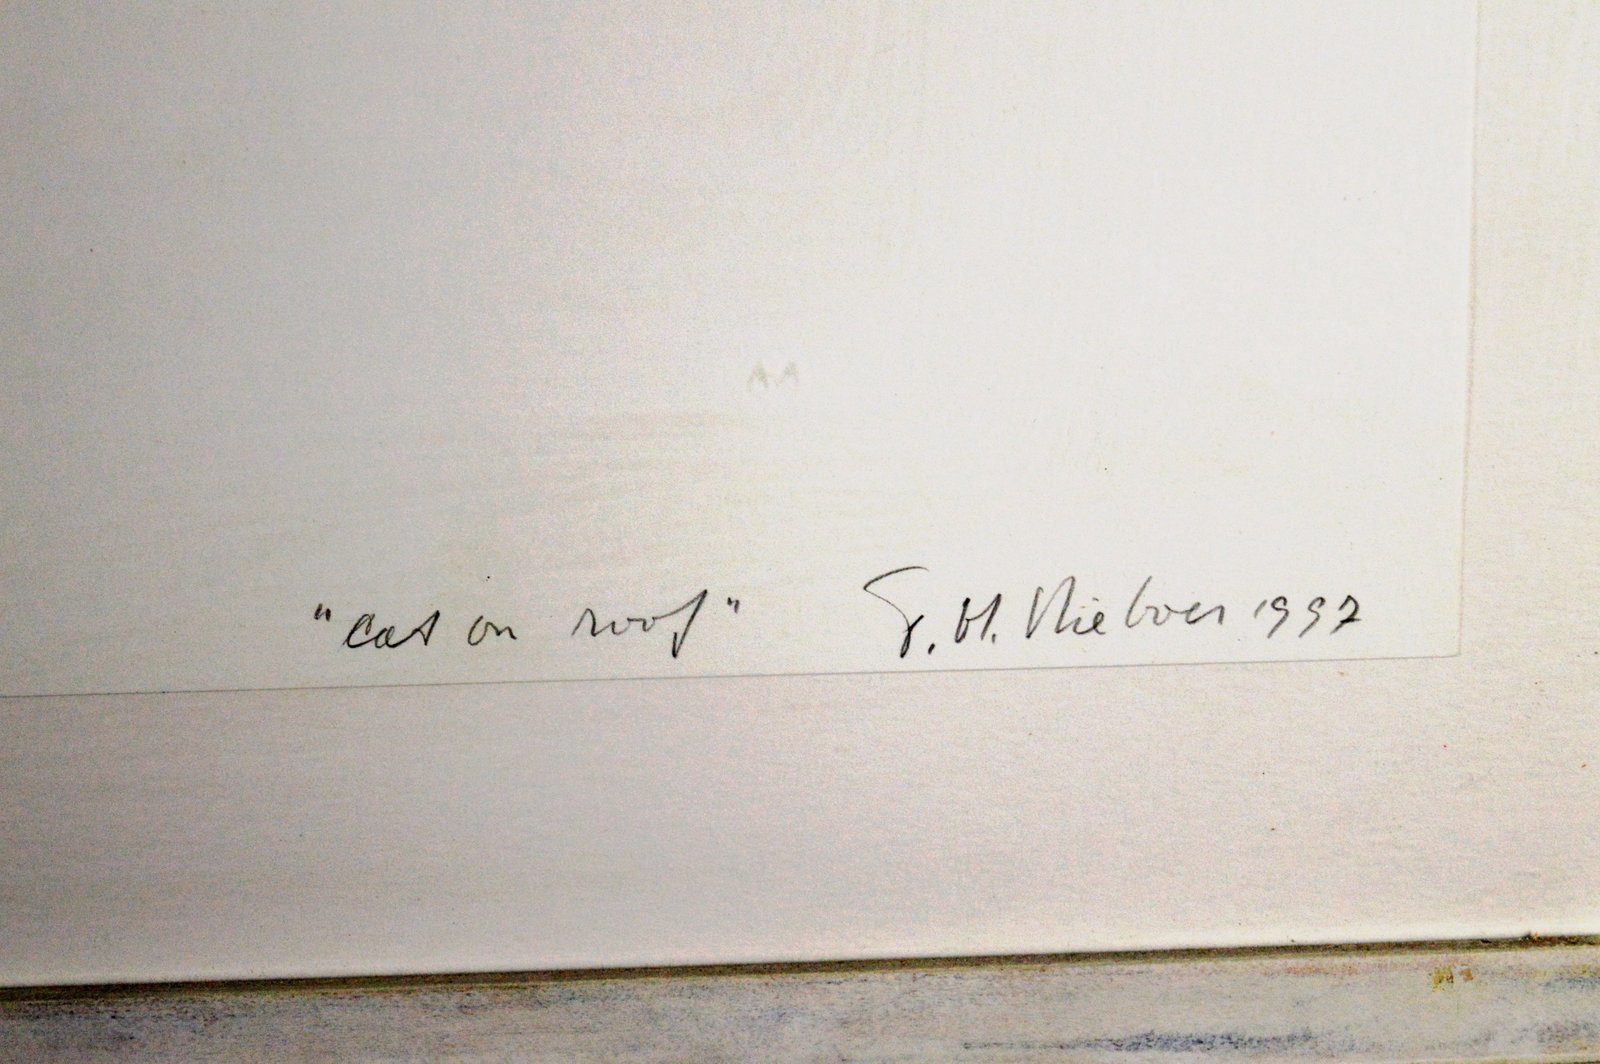 "cat on roof" G. H. Nieboer 1997